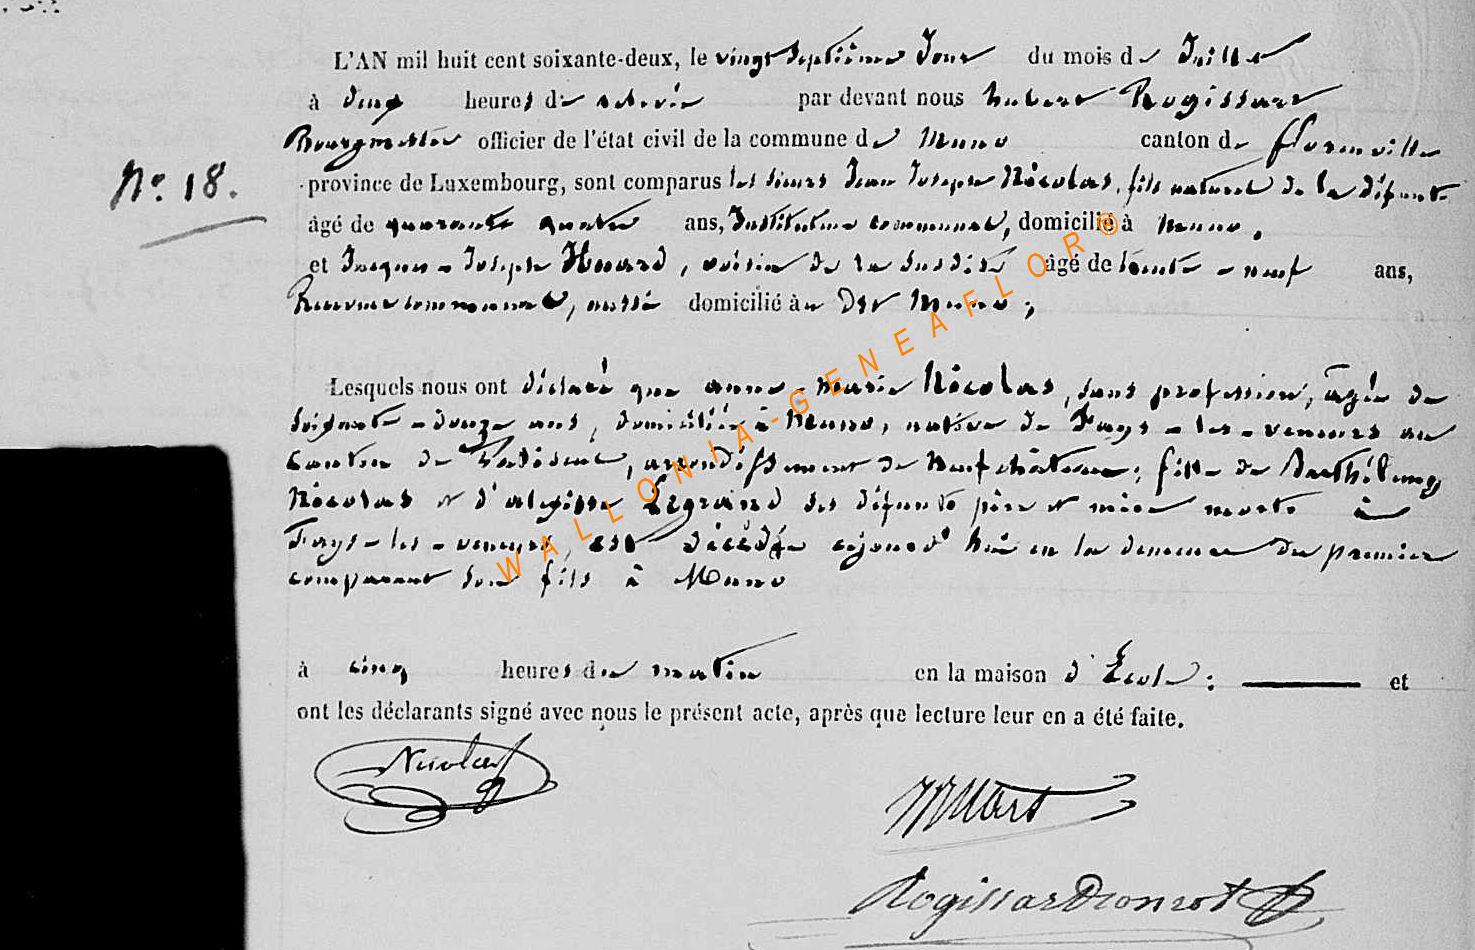 L'AN mil huit cent soixante-deux, le vingt septième Jour du mois de Juillet
à deux heures de relevée par devant nous hubert Rogissart
Bourgmestre officier de l'état civil de la commune de Muno canton de florenville
N° 18.
province de Luxembourg, sont comparus les sieurs Jean Joseph Nicolas, fils naturel de la défunte
âgé de quarante quatre ans, Instituteur communal, domicilié à Muno,
et Jacques-Joseph Huard, voisin de la susdite âgé de trente-neuf ans,
Receveur communal, aussi domicilié à Muno;
Lesquels nous ont déclaré que anne-marie Nicolas, sans profession, âgée de
soixante-douze ans, domiciliée à Muno, native de Fays-les-veneurs au
Canton de Paliseul, arrondissement de Neufchâteau; fille de Barthélemy
Nicolas et d' Legrand ses défunts père et mère morts à
Fays-les-veneurs, est décédée cejourd'hui en la demeure du premier
comparant son fils à Muno
à cinq heures du matin en la maison d'École; et
ont les déclarants signé avec nous le présent acte, après que lecture leur en a été faite.
Nicolas
Huart
Rogissart
WALLONIA-GENEAFLOR©